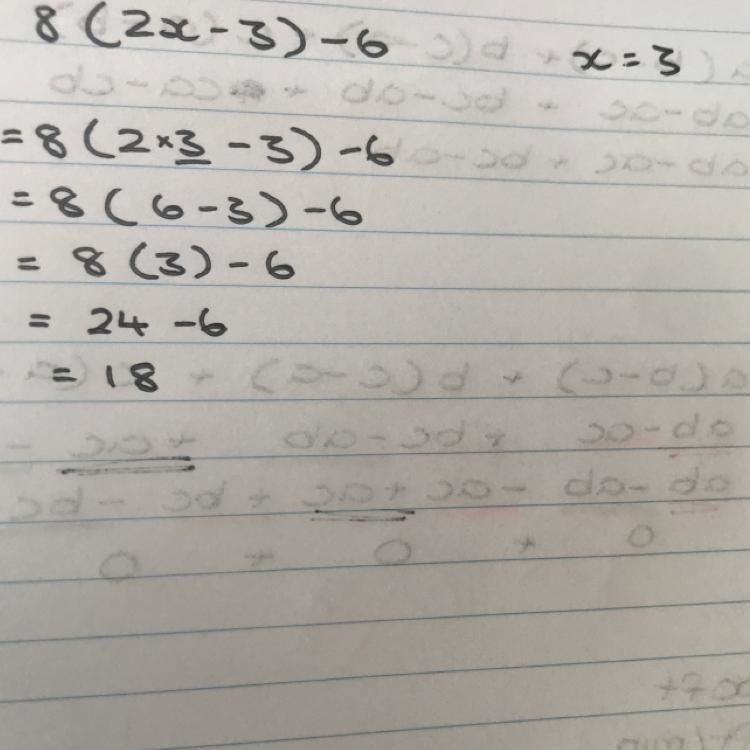 8(2x-3)-6 x=3
=8(2×3-3)-6
=8(6-3)-6
=8(3)-6
=24-6
=18